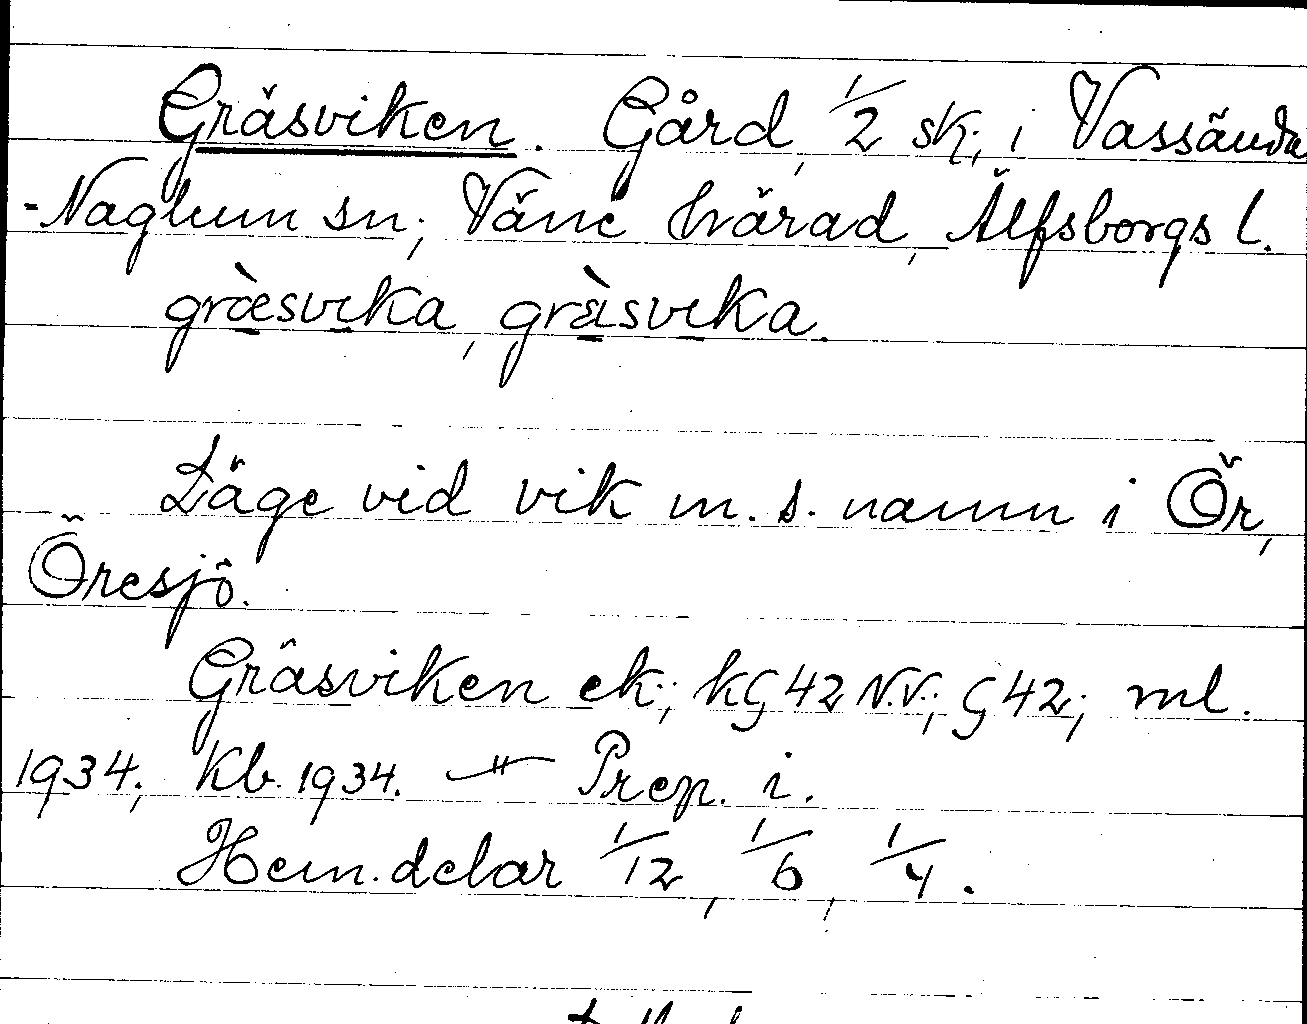 Gräsviken. Gård, 1/2 sk., i Vassända
-Naglum sn; Väne härad, Älfsborgs l.
græ̀svika, grä̀svika.
Läge vid vik m. s. namn i Ör,
Öresjö.
Gräsviken ek.; kG 42 N.V.; G 42; ml.
1934; Kb. 1934. — Prep. i.
Hem.delar 1/12, 1/6, 1/4.